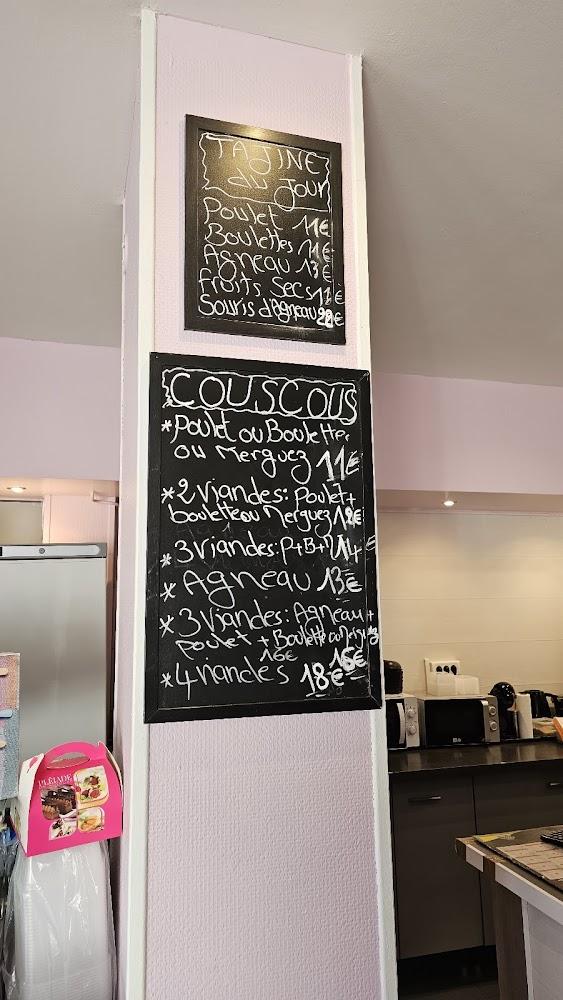 TAJINE
du Jour
Poulet 11€
Boulettes 11€
Agneau 13€
fruits Secs 11€
Souris d'Agneau 22€
COUSCOUS
*Poulet ou Boulettes
ou Merguez 11€
*2 Viandes: Poulet +
boulette ou Merguez 12€
*3 Viandes: P+B+M 14€
*Agneau 13€
*3 Viandes: Agneau +
poulet + Boulette ou Merguez
16€ 16€
*4 viandes 18€
PLÉIADE